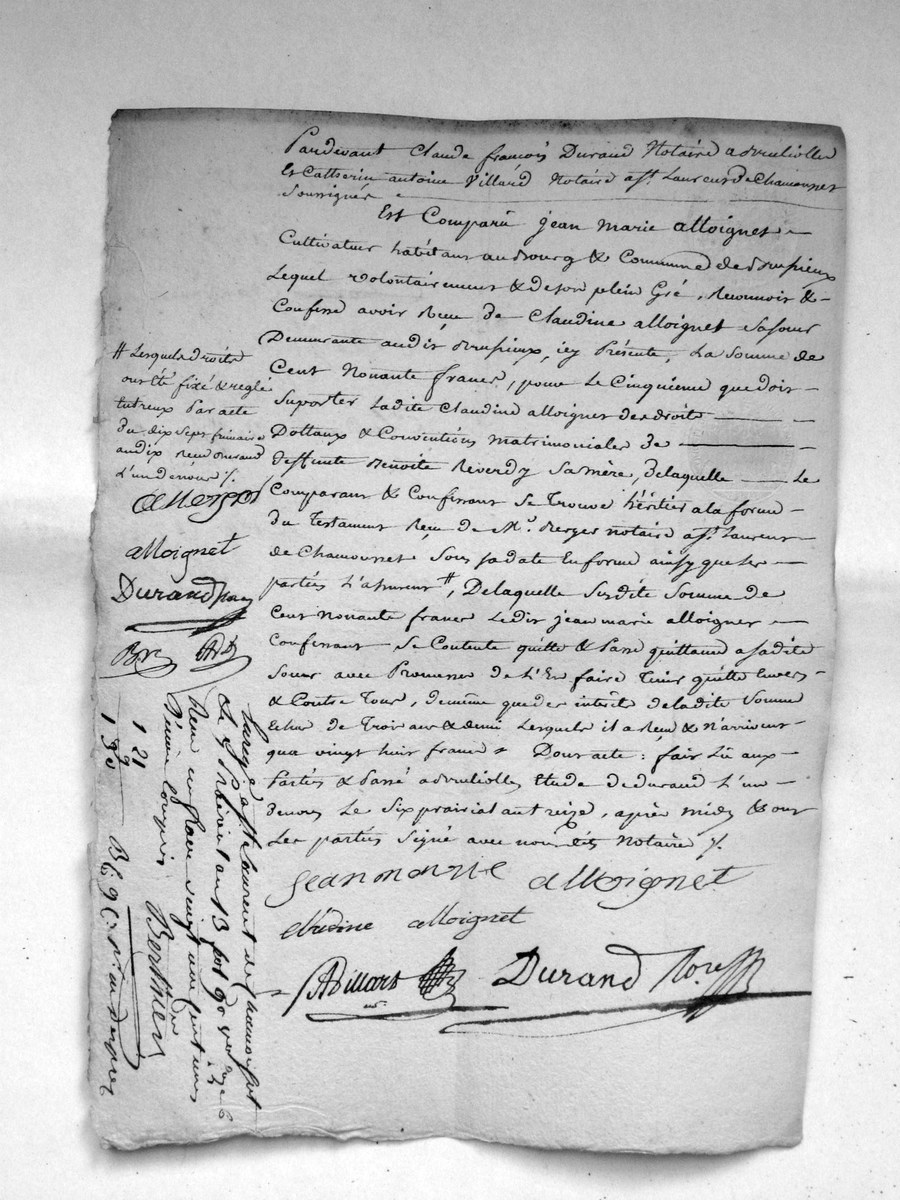 Pardevant Claude françois Durand Notaire adruliolles
Et Catherin antoine Villard Notaire a St. Laurent de Chamousset
Soussignés
Est Comparû jean marie alloignet
Cultivateur habitant au Bourg & Commune de
Lequel volontairement & de son plein Gré, Reconnoit &
Confesse avoir Recu de Claudine alloignet sa soeur
Demeurante audit , icy Présente, La Somme de
Cent Nonante francs, pour Le Cinquieme que doit
Suporter Ladite Claudine alloignet des droits
Dottaux & Conventions matrimoniales de
deffunte Benoite Reverdy Sa mère, de laquelle Le
Comparant & Confessant Se Trouve héritier a la forme
du Testament Recu de Me. Berger notaire a St. Laurent
de Chamousset Sous sa date En forme ainsy que Les
parties L'assurent #, De laquelle Susdite Somme de
Cent nonante francs Ledit jean marie alloignet
Confessant Se Contente quitte & Passe quittance a sa dite
Soeur avec Promesse de L'En faire Tenir quitte Envers
& Contre Tous, de même que des interêt de ladite Somme
Echus de Trois ans & demi Lesquels il a Recu &
qua vingt huit francs Dont acte : fait Lû aux
Parties & Passé adruliolles Etude de durand L'un
de nous Le Six prairial an treize, après midy & ont
Les parties Signé avec nous dits Notaires ./.
jean marie alloignet
cladine alloignet
Villard Durand Nore
# Lesquels droits
ont Eté fixé & reglé
entreux Par acte
du dix Sept frimaire
an dix Recu Durand
L'un de nous ./.
alloignet
Durand
Enregé a St laurent de chamousset
Le 9 an 13 fol 90 vo Case 6
Recu un franc vingt une centimes
Dixieme Compris Berthier
1 21
9
1 30